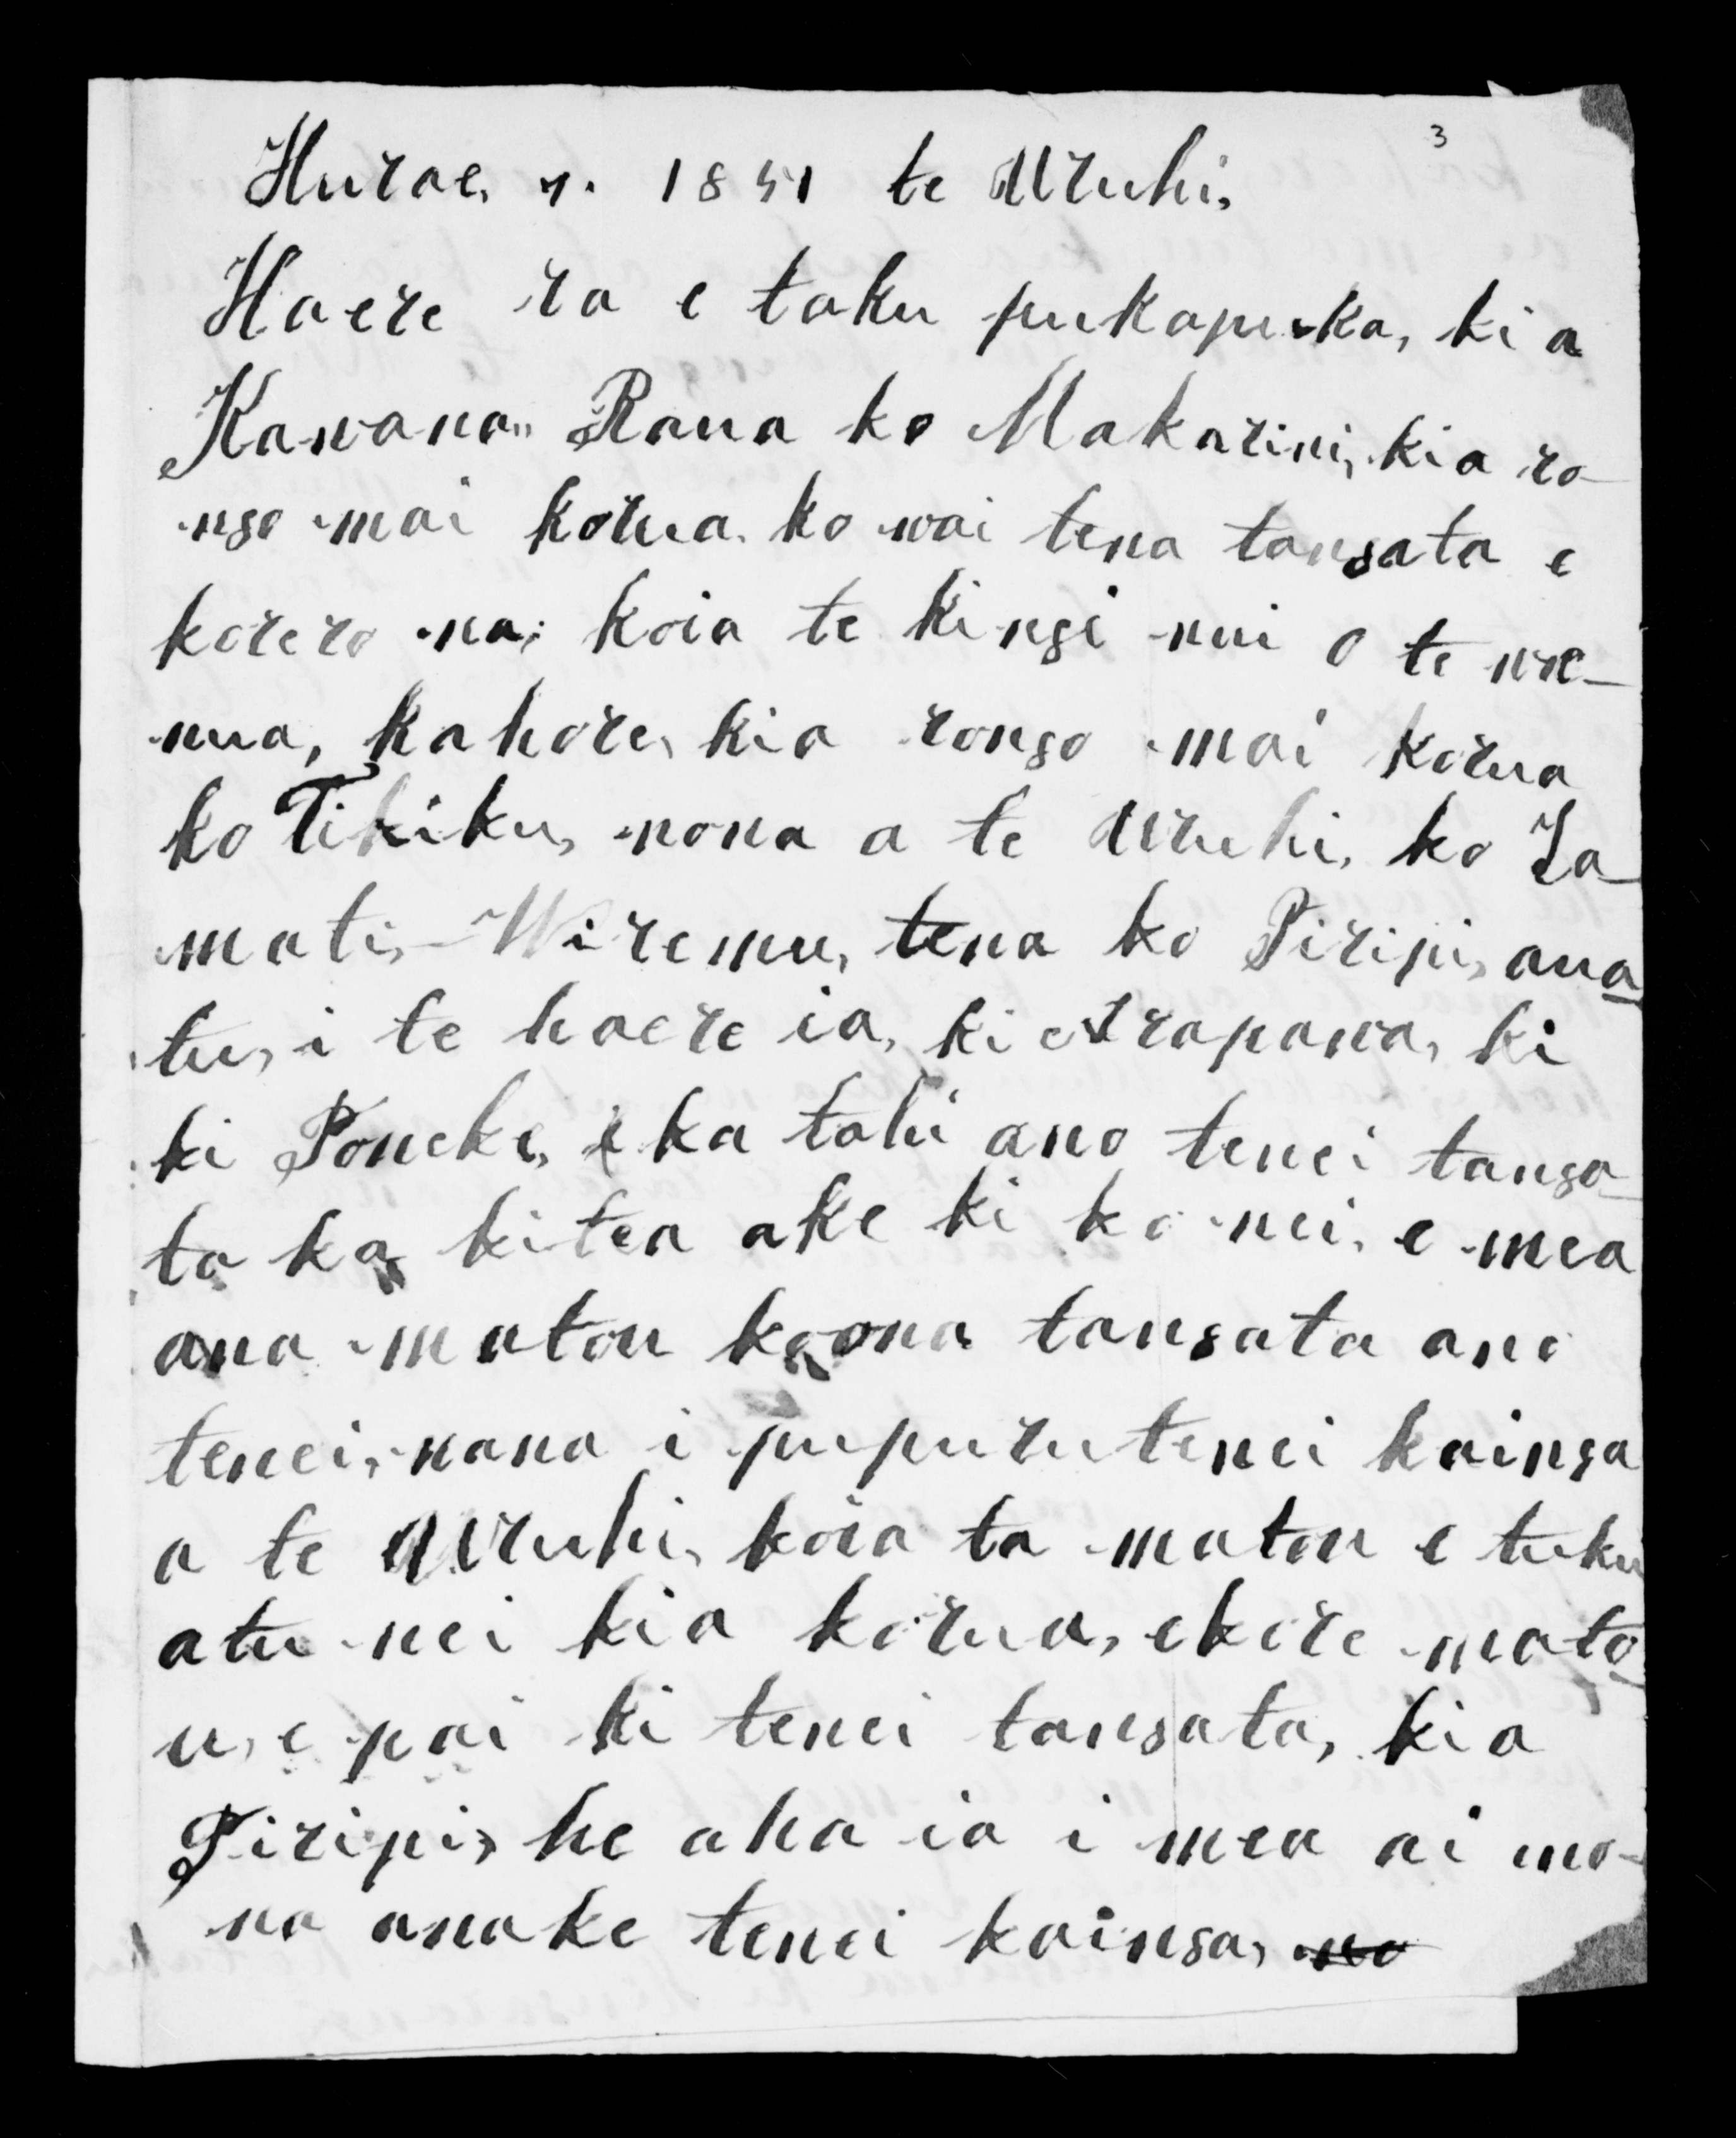 3
Hurae, 7. 1851 te Uruhi,
Haere ra e taku pukapuka, ki a
Kawana,, Raua ko Makarini, kia ro-
ngo mai korua. ko wai tena tangata e
korero na; koia te kingi nui o te we-
nua, kahore, kia rongo mai korua
ko Tikiku, nona a te Uruhi, ko Za-
mati, Wiremu, tena ko Piripi, ana
tu, i te haere ia, ki Arapawa, ki
ki Poneke, ka tahi ano tenei tanga-
ta ka kitea ake ki ko nei, e mea
ana matou koona tangata ano
tenei, nana i pupuru tenei kainga
a te Uruhi, koia ta matou e tuku
atu nei kia korua, ekore mato
u, e pai ki tenei tangata, kia
Piripi, he aha ia i mea ai mo-
na anake tenei kainga, no